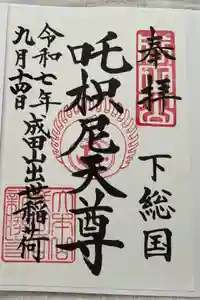 奉拝
下総国
吒枳尼天尊
令和七年
九月十四日
成田山出世稲荷